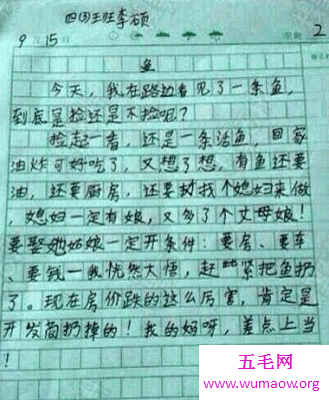 四(4)班李硕
9月15日 星期 2
鱼
今天,我在路边看见了一条鱼,
到底是捡还是不捡呢?
捡起一看,还是一条活鱼,回家
油炸可好吃了,又想了想,有鱼还要
油,还要厨房,还要找个媳妇来做
,媳妇一定有娘,又多了个丈母娘!
要娶她姑娘一定开条件:要房、要车
要钱一我恍然大悟,赶紧把鱼扔
了。现在房价跌的这么厉害,肯定是
开发商扔掉的!我的妈呀,差点上当
!
五毛网
www.wumaow.org